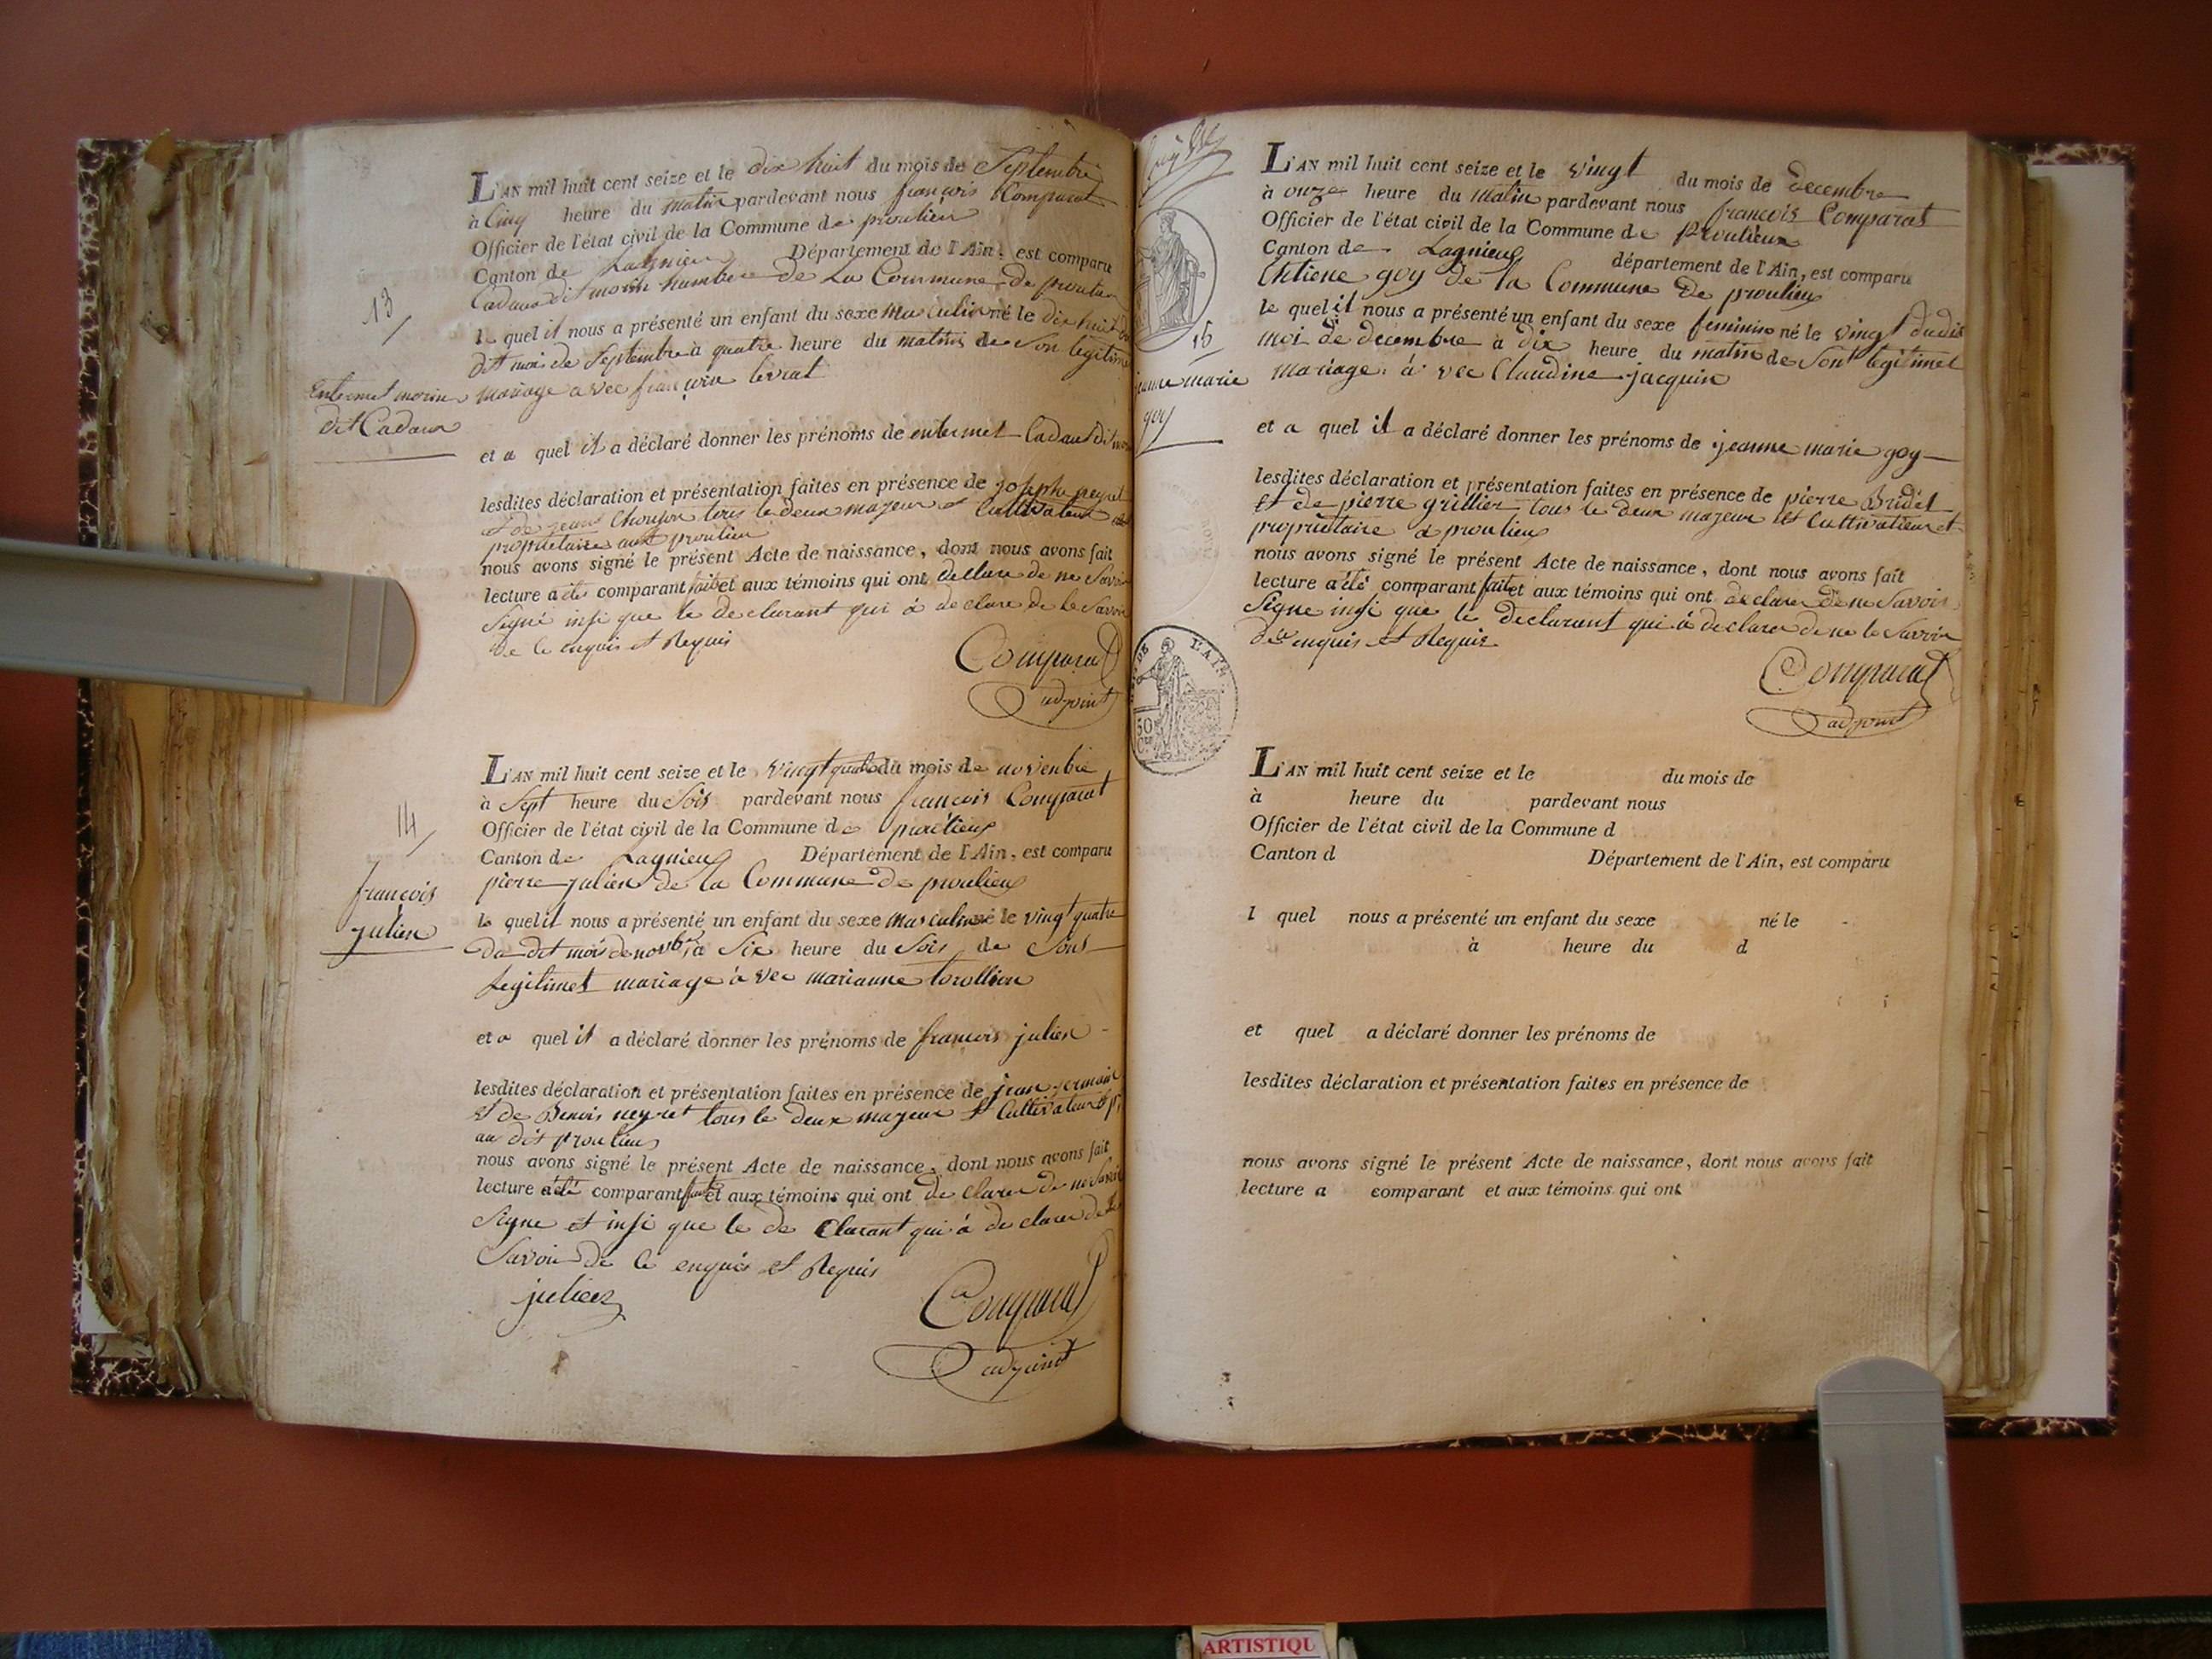 L'AN mil huit cent seize et le dix huit du mois de Septembre
à Cinq heure du matin pardevant nous françois Comparat
Officier de l'état civil de la Commune de proulieu
Canton de Lagnieu Département de l'Ain, est comparu
Cadaux dit morin humbert de La Commune de proulieu
le quel il nous a présenté un enfant du sexe masculin né le dix huit du
dit mois de Septembre à quatre heure du matin de Son legitime
mariage avec levrat
et a quel il a déclaré donner les prénoms de entermet Cadaux dit
lesdites déclaration et présentation faites en présence de josephe neyret
et de jean tous le deux majeur et Cultivateur
propriétaire audit proulieu
nous avons signé le présent Acte de naissance, dont nous avons fait
lecture a été comparant fait et aux témoins qui ont declare de ne Savoir
Signé insi que le declarant qui à declare de le Savoir
de ce enquis et Requis
Comparat
adjoint
13
Entermet morin
dit Cadaux
L'AN mil huit cent seize et le vingt quatre du mois de novenbre
à Sept heure du Soir pardevant nous françois Comparat
Officier de l'état civil de la Commune de proulieux
Canton de Lagnieu Département de l'Ain, est comparu
pierre julien de la Commune de proulieu
le quel il nous a présenté un enfant du sexe masculin né le vingt quatre
du dit mois de novbre à Six heure du Soir de Sont
Legitimet mariage à vec marianne torollion
et a quel il a déclaré donner les prénoms de francois julien
lesdites déclaration et présentation faites en présence de jean germain
et de Benois neyret tous le deux majeur et Cultivateur et
au dit proulieu
nous avons signé le présent Acte de naissance, dont nous avons fait
lecture a été comparant fait et aux témoins qui ont de clarer de ne Savoir
Signe et insi que le de Clarant qui à de clarer de
Savoir de ce enquis et Requis
julien
Comparat
adjoint
14
françois
julien
L'AN mil huit cent seize et le vingt du mois de decembre
à onze heure du matin pardevant nous francois Comparat
Officier de l'état civil de la Commune de proulieux
Canton de Lagnieu département de l'Ain, est comparu
Ehtiene goy de la Commune de proulieu
le quel il nous a présenté un enfant du sexe feminin né le vingt dudit
moi de decembre à dix heure du matin de Sont legitimet
mariage à vec Claudine jacquin
et a quel il a déclaré donner les prénoms de jeanne marie goy
lesdites déclaration et présentation faites en présence de pierre Bridet
et de pierre grillier tous le deux majeur et Cultivatieur et
propriétaire a proulieu
nous avons signé le présent Acte de naissance, dont nous avons fait
lecture a été comparant fait et aux témoins qui ont declarer de ne Savoir
Signe insi que le Declarant qui à declarer de ne le Savoir
de ce enquis et Requis
Comparat
adjoint
15
jeanne marie
goy
DE L'AIN
50
L'AN mil huit cent seize et le du mois de
à heure du pardevant nous
Officier de l'état civil de la Commune d
Canton d Département de l'Ain, est comparu
l quel nous a présenté un enfant du sexe né le
à heure du d
et quel a déclaré donner les prénoms de
lesdites déclaration et présentation faites en présence de
nous avons signé le présent Acte de naissance, dont nous avons fait
lecture a comparant et aux témoins qui ont
ARTISTIQU